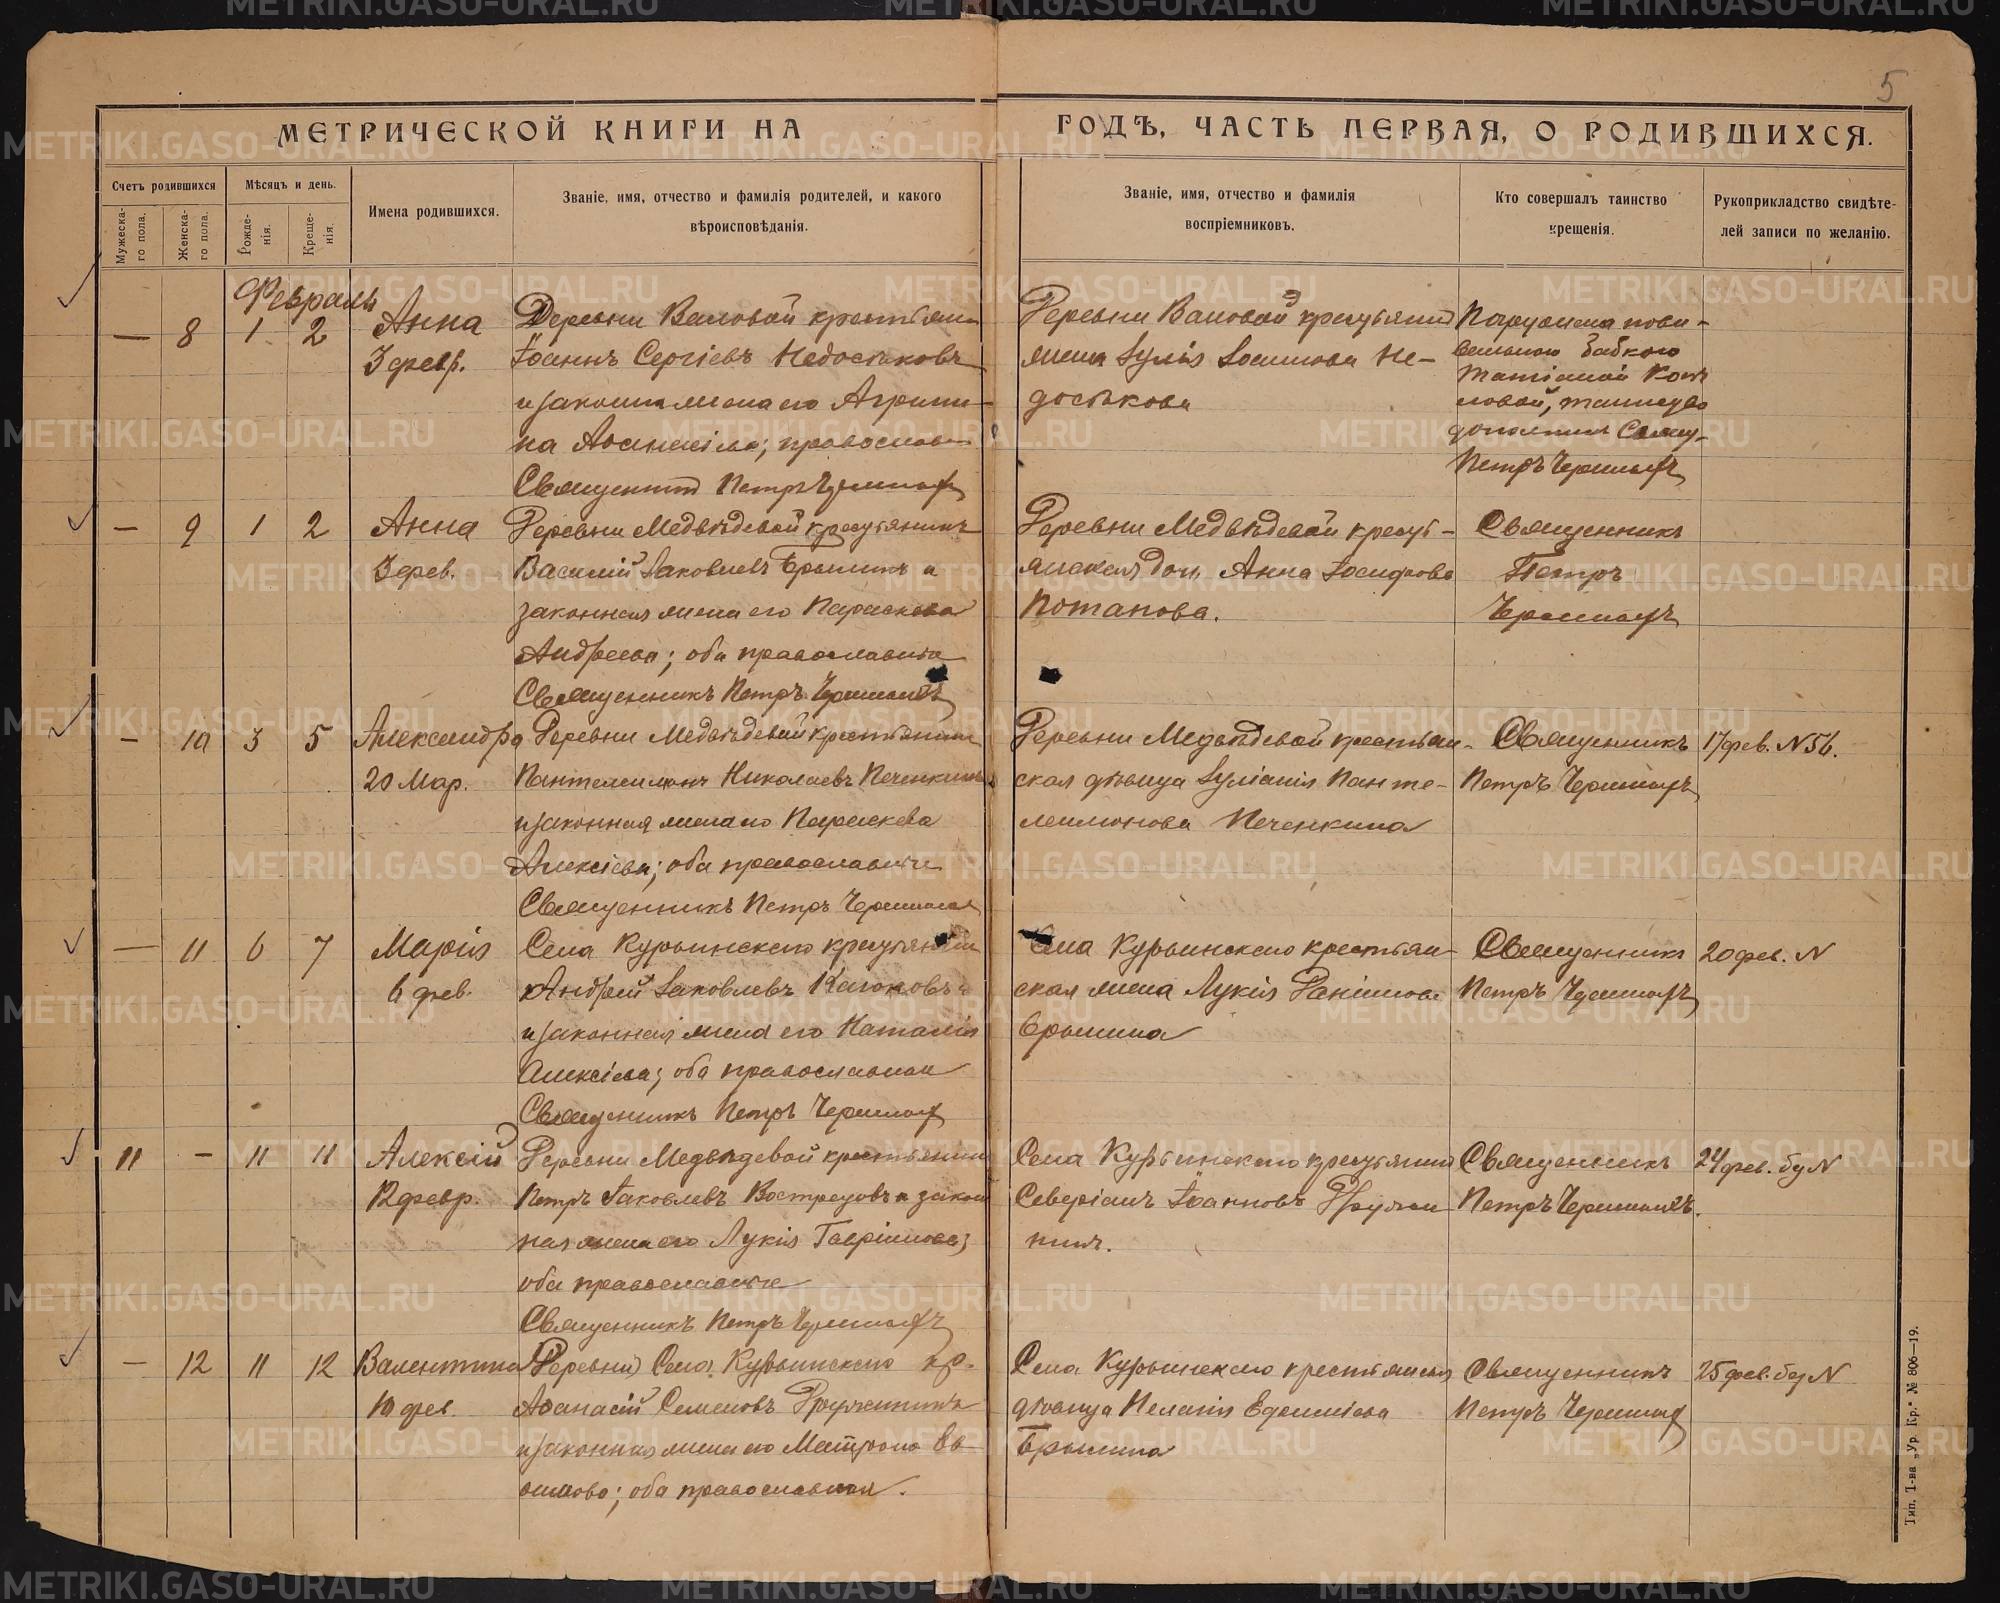 5
МЕТРИЧЕСКОЙ КНИГИ НА ГОДЪ, ЧАСТЬ ПЕРВАЯ, О РОДИВШИХСЯ.
Счетъ родившихся
Мужеска-го пола.
Женска-го пола.
Мѣсяцъ и день.
Рожде-нія.
Креще-нія.
Имена родившихся.
Званіе, имя, отчество и фамилія родителей, и какого
вѣроисповѣданія.
Званіе, имя, отчество и фамилія
воспріемниковъ.
Кто совершалъ таинство
крещенія.
Рукоприкладство свидѣте-
лей записи по желанію.
Февраль
— 8 1 2
Анна
3 февр.
Деревни Валовой крестьянинъ
Іоаннъ Сергіевъ Недостоковъ
и законная жена его Агрипи-
на Аѳанасіева; православн
Священникъ Петръ
Деревни Валовой крестьянин
жена Іулія
достокова
Погружена пови-
вальною бабкою
Татіаной
дополнилъ Свящ.
Петръ
— 9 1 2
Анна
3 фев.
Деревни Медвѣдевой крестьянинъ
Василій Іаковлевъ Брылинъ и
законная жена его Параскева
Андреева; оба православные
Священникъ Петръ
Деревни Медвѣдевой крест-
янская Анна Іосифова
Потапова.
Священникъ
Петръ
— 10 3 5
Александра
20 Мар.
Деревни Медвѣдевой крестьянинъ
Пантелеимонъ Николаевъ Печенкинъ
и законная жена его Параскева
Алексіева; оба православные
Священникъ Петръ
Деревни Медвѣдевой крестьян-
ская дѣвица Іуліанія Панте-
леимонова Печенкина
Священникъ
Петръ
17 фев. N 56.
— 11 6 7
Марія
6 фев.
Села Курьинскаго крестьянин
Андрей Іаковлевъ
и законная жена его Наталія
Алексіева; оба православныя
Священникъ Петръ
Села Курьинскаго крестьян-
ская жена Лукія
Брылина
Священникъ
Петръ
20 фев. N
11 — 11 11
Алексій
12 февр.
Деревни Медвѣдевой крестьянин
Петръ Іаковлевъ Востредовъ и закон
ная жена его Лукія Гавріилова;
оба православные
Священникъ Петръ
Села Курьинскаго крестьянин
Северіанъ Іоанновъ Дружи
нинъ.
Священникъ
Петръ
24 фев. бу N
— 12 11 12
Валентина
10 фев.
Деревни Села Курьинскаго кр.
Аѳанасій Семеновъ Дружининъ
и законная жена его Матрона
оба православныя.
Села Курьинскаго крестьянская
дѣвица Пелагія
Брылина
Священникъ
Петръ
25 фев. без N
Тип. Т-ва „Ур. Кр." № 806—19.
METRIKI.GASO-URAL.RU